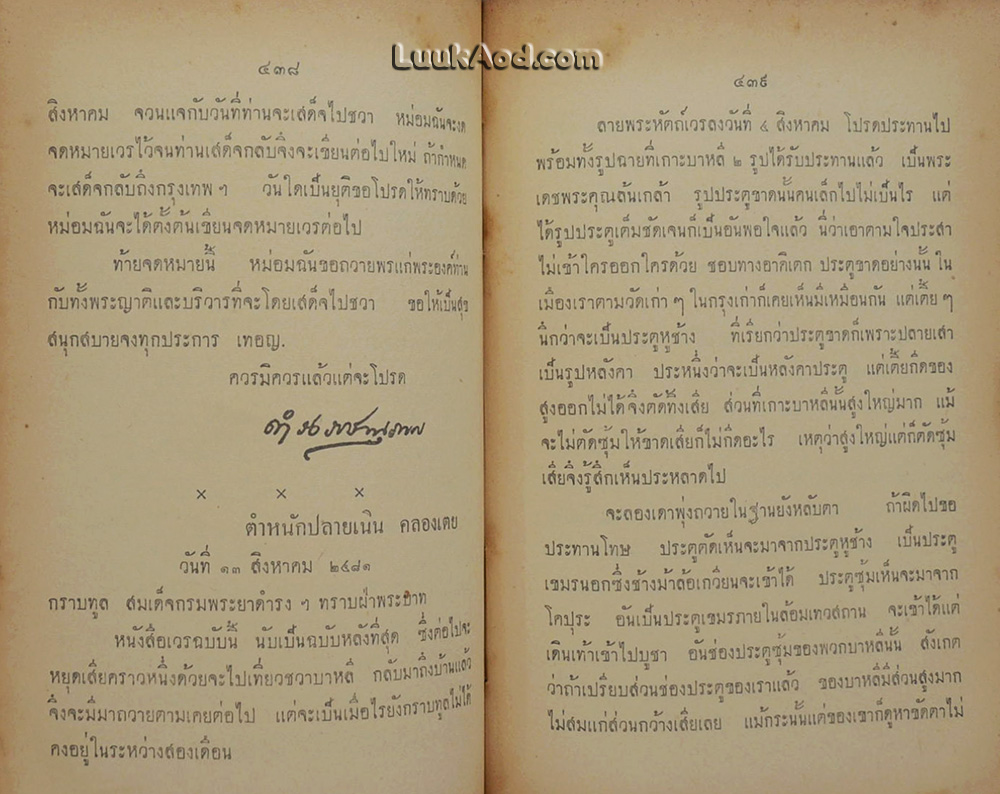 LuukAod.com
๔๓๘
สิงหาคม จวนแจกับวันที่ท่านจะเสด็จไปชวา หม่อมฉันจะงด
จดหมายเวรไว้จนท่านเสด็จกลับจึงจะเขียนต่อไปใหม่ ถ้ากำหนด
จะเสด็จกลับถึงกรุงเทพ ฯ วันใดเป็นยุติขอโปรดให้ทราบด้วย
หม่อมฉันจะได้ตั้งต้นเขียนจดหมายเวรต่อไป
ท้ายจดหมายนี้ หม่อมฉันขอถวายพรแก่พระองค์ท่าน
กับทั้งพระญาติและบริวารที่จะโดยเสด็จไปชวา ขอให้เป็นสุข
สนุกสบายจงทุกประการ เทอญ.
ควรมิควรแล้วแต่จะโปรด
ดำรงราชานุภาพ
× × ×
ตำหนักปลายเนิน คลองเตย
วันที่ ๑๓ สิงหาคม ๒๔๘๑
กราบทูล สมเด็จกรมพระยาดำรง ฯ ทราบฝ่าพระบาท
หนังสือเวรฉบับนี้ นับเป็นฉบับหลังที่สุด ซึ่งต่อไปจะ
หยุดเสียคราวหนึ่งด้วยจะไปเที่ยวชวาบาหลี กลับมาถึงบ้านแล้ว
จึงจะมีมาถวายตามเคยต่อไป แต่จะเป็นเมื่อไรยังกราบทูลไม่ได้
คงอยู่ในระหว่างสองเดือน
๔๓๙
ลายพระหัตถ์เวรลงวันที่ ๔ สิงหาคม โปรดประทานไป
พร้อมทั้งรูปฉายที่เกาะบาหลี ๒ รูปได้รับประทานแล้ว เป็นพระ
เดชพระคุณล้นเกล้า รูปประตูขาดนั้นคนเล็กไปไม่เป็นไร แต่
ได้รูปประตูเต็มชัดเจนก็เป็นอันพอใจแล้ว นี่ว่าเอาตามใจประสา
ไม่เข้าใครออกใครด้วย ชอบทางอาคิเตก ประตูขาดอย่างนั้น ใน
เมืองเราตามวัดเก่า ๆ ในกรุงเก่าก็เคยเห็นมีเหมือนกัน แต่เตี้ย ๆ
นึกว่าจะเป็นประตูหูช้าง ที่เรียกว่าประตูขาดก็เพราะปลายเสา
เป็นรูปหลังคา ประหนึ่งว่าจะเป็นหลังคาประตู แต่เตี้ยกีดของ
สูงออกไม่ได้ จึงตัดทิ้งเสีย ส่วนที่เกาะบาหลีนั้นสูงใหญ่มาก แม้
จะไม่ตัดซุ้มให้ขาดเสียก็ไม่กีดอะไร เหตุว่าสูงใหญ่แต่ก็ตัดซุ้ม
เสียจึงรู้สึกเห็นประหลาดไป
จะลองเดาพุ่งถวายในฐานยังหลับตา ถ้าผิดไปขอ
ประทานโทษ ประตูตัดเห็นจะมาจากประตูหูช้าง เป็นประตู
เขมรนอกซึ่งช้างม้าล้อเกวียนจะเข้าได้ ประตูซุ้มเห็นจะมาจาก
โคปุระ อันเป็นประตูเขมรภายในล้อมเทวสถาน จะเข้าได้แต่
เดินเท้าเข้าไปบูชา อันช่องประตูซุ้มของพวกบาหลีนั้น สังเกต
ว่าถ้าเปรียบส่วนช่องประตูของเราแล้ว ของบาหลีมีส่วนสูงมาก
ไม่สมแก่ส่วนกว้างเสียเลย แม้กระนั้นแต่ของเขาก็ดูหาขัดตาไม่